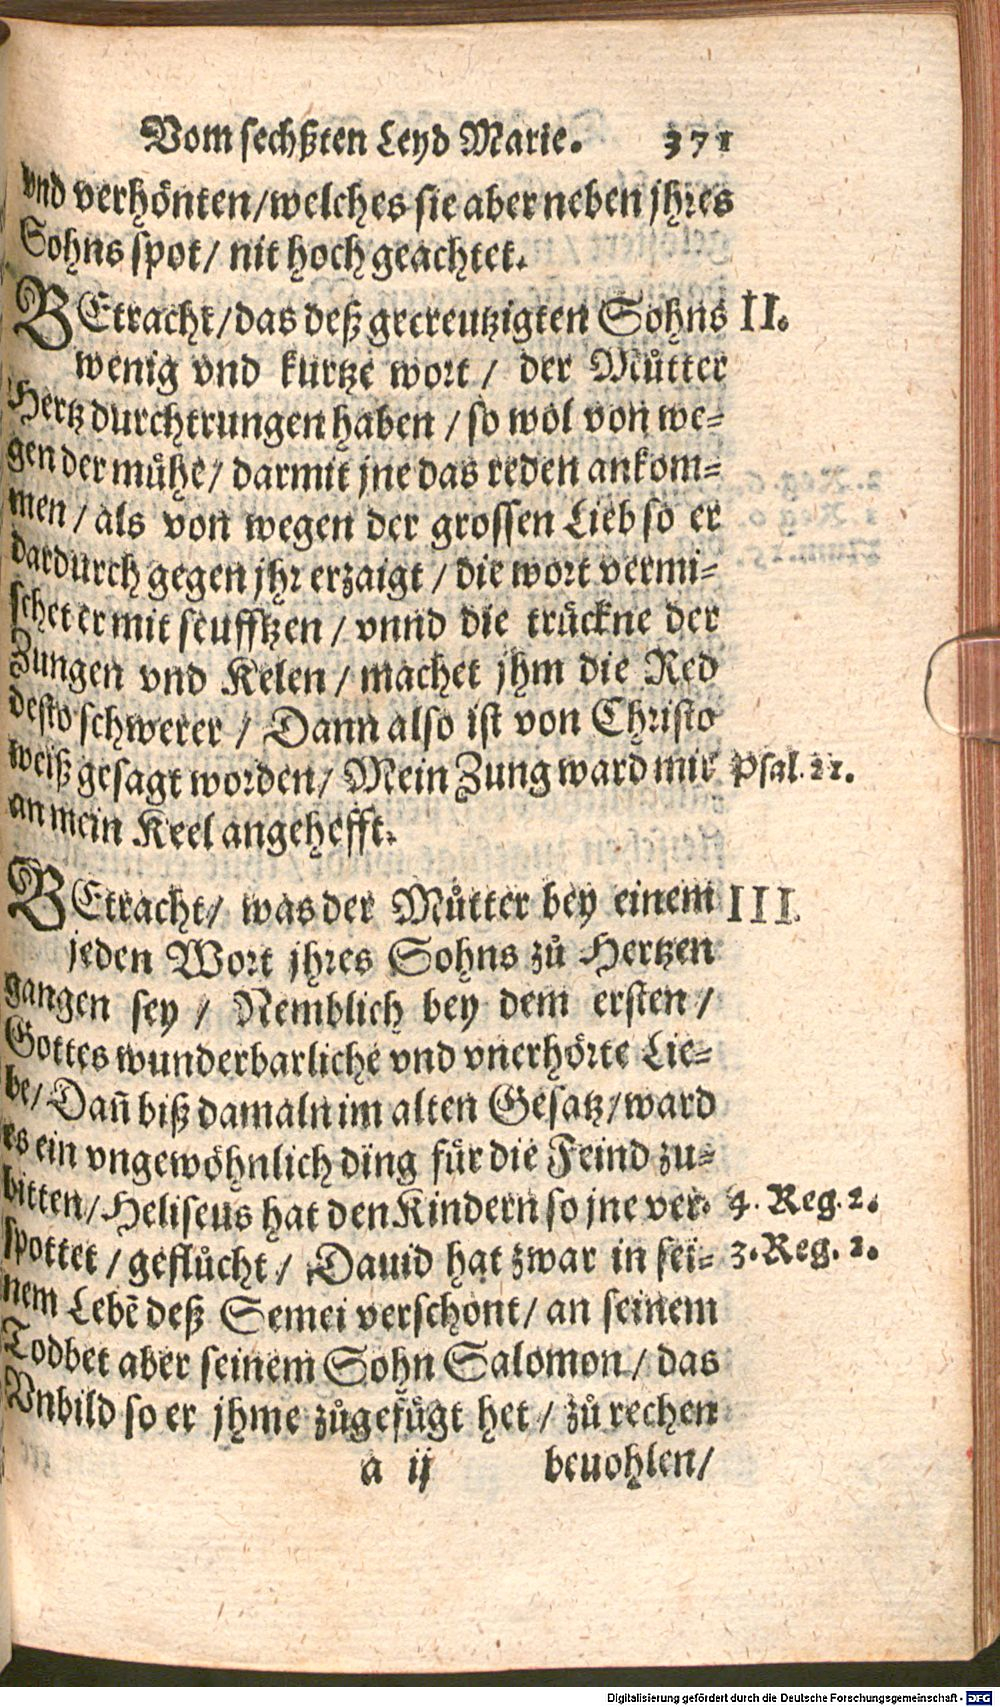 Vom sechßten Leyd Marie. 371
vnd verhönten/welches sie aber neben jhres
Sohns spot/ nit hoch geachtet.
BEtracht/das deß gecreutzigten Sohns II.
wenig vnd kurtze wort / der Můtter
Hertz durchtrungen haben / so wol von we=
gen der mühe/ darmit jne das reden ankom=
men / als von wegen der grossen Lieb so er
dardurch gegen jhr erzaigt / die wort vermi=
schet er mit seufftzen / vnnd die trückne der
Zungen vnd Kelen / machet jhm die Red
desto schwerer / Dann also ist von Christo
weiß gesagt worden/ Mein Zung ward mir Psal. 21.
an mein Keel angehefft.
BEtracht/ was der Můtter bey einem III.
jeden Wort jhres Sohns zů Hertzen
gangen sey / Nemblich bey dem ersten /
Gottes wunderbarliche vnd vnerhörte Lie=
be/ Dañ biß damaln im alten Gesatz/ward
es ein vngewöhnlich ding für die Feind zu=
bitten/Heliseus hat den Kindern so jne ver= 4. Reg. 2.
spottet / geflůcht / Dauid hat zwar in sei= 3. Reg. 2.
nem Lebẽ deß Semei verschont/ an seinem
Todbet aber seinem Sohn Salomon / das
Vnbild so er jhme zůgefügt het / zů rechen
a ij beuohlen/
Digitalisierung gefördert durch die Deutsche Forschungsgemeinschaft - DFG